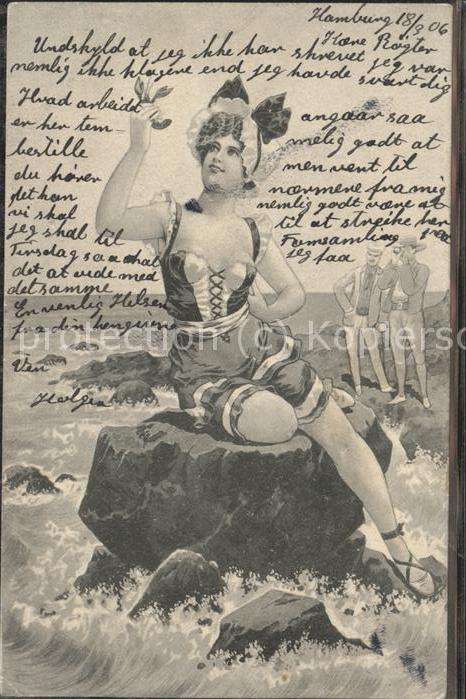 Hamburg 18/3 06
Kære Røgter
Undskyld at jeg ikke har skrevet jeg var
nemlig ikke klogere end jeg havde svært dig
Hvad arbeidet
er her tem-
bestille
du hører
det kan
vi skal
jeg skal til
Tirsdag saa skal
det at vide med
det samme
En venlig Hilsen
fra din hengivne
Ven
Helge
angaar saa
melig godt at
men vent til
nærmere fra mig
nemlig godt være at
til at streike her
Famsamling
jeg faa
protection (c) Kopiersc